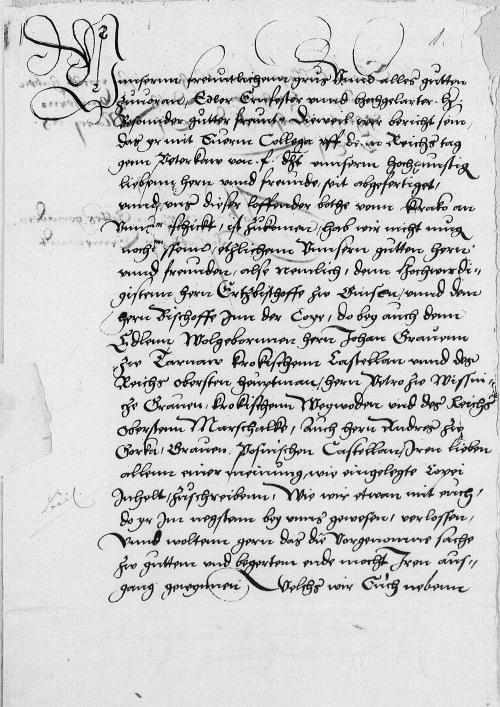 1.
unserm freuntlichenn grus Vnnd alles gutten
zuuoran, Edler Ernfester vnnd hochgelarter h
Besonder gutter freunt. Dieweil wir bericht sein,
das yr mit Euerm College vff dem Reichstag
genn Peterkaw von f. dht vnnserm hochgunstig
liebenn hern vnnd freunde, seit abgefertiget,
vnnd vns dieser loffender bothe vonn Krako an
Vnns schickt, ist zukomen, hab wir nicht mug
nach etzlichenn Vnnsern gutten hern
vnnd freunden, alse nemlich, dem Hochwirdi-
gistenn hern Ertzbischoffe zw Gnisen, vnnd dem
hern Bischoffe Inn der Coye, do bey auch dem
Edlenn Wolgebornnen hern Johan Grauenn
zw Tarnaw krokischenn Castellan vnnd des
Reichs obersten heuptman, hern Petro zw Wissni-
tze Grauen, krokischenn Woywoden vnd des Reichs
oberstenn Marschalke, Auch hern Andres zw
Gorka, Grauen Posnischen Castellan, Iren lieben
allenn einer meinung, wie eingelegte Copei
Inholt, zuschreibenn, Wie wir etwan mit euch,
do yr Im negstenn bey vnns gewesen, verlossen,
Vnnd woltenn gern das die vorgenomne sache
zw guttem vnd begertem ende mocht Iren aus-
gang gewynnen, Welchs wir Euch nebenn